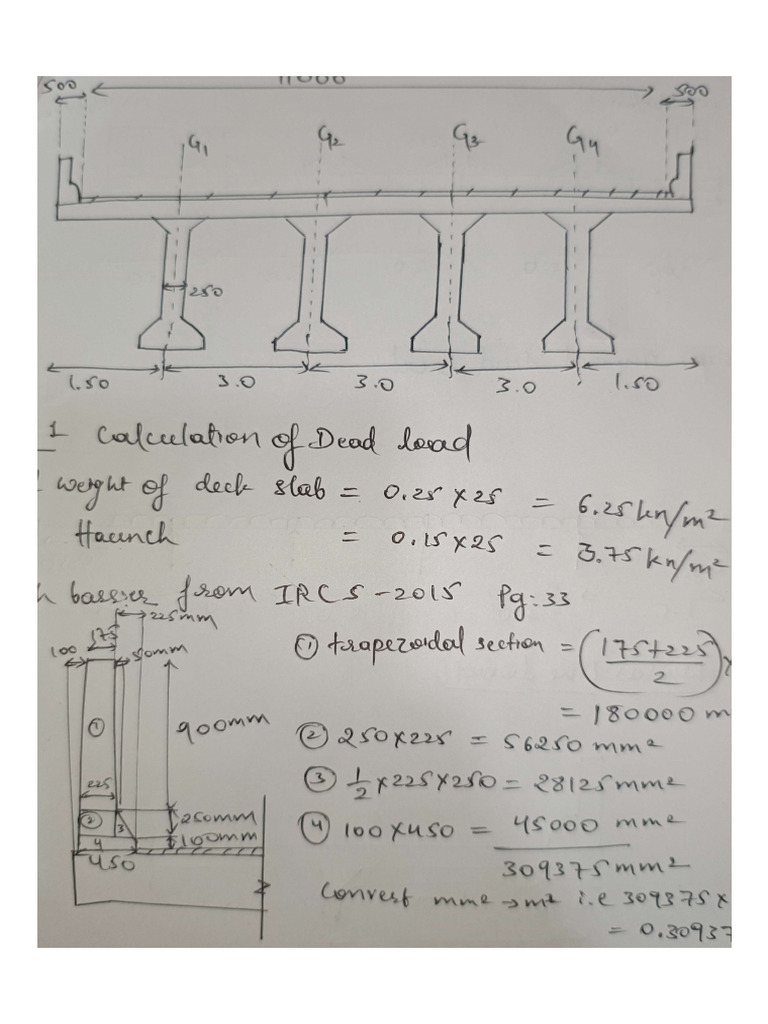 500 11000 500
G1 G2 G3 G4
250
1.50 3.0 3.0 3.0 1.50
1 Calculation of Dead load
weight of deck slab = 0.25 x 25 = 6.25 kn/m²
Haunch = 0.15 x 25 = 3.75 kn/m²
barrier from IRC5-2015 Pg:33
225mm
175
100 50mm
① trapezoidal section = (175+225/2)x
900mm
= 180000 m
①
② 250x225 = 56250 mm²
225
③ 1/2 x 225 x 250 = 28125 mm²
② 3 250mm
4 100mm
④ 100 x 450 = 45000 mm²
450
309375 mm²
Convert mm² → m² i.e 309375 x
= 0.30937